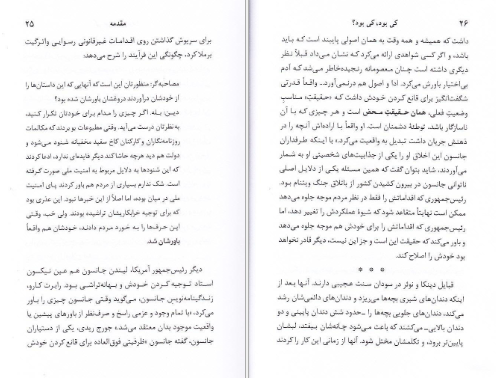 ۲۶
کی بود، کی بود؟
داشت که همیشه و همه وقت به همان اصولی پایبند بوده که باید
باشد، و اگر کسی شواهدی ارائه می‌کرد که نشان می‌داد قبلاً نظر
دیگری داشته است چنان معصومانه رنجیده‌خاطر می‌شد که آدم
بی‌اختیار باورش می‌کرد. ادا و اصول هم درنمی‌آورد... ظرفیتی
شگفت‌انگیز برای قانع کردن خودش داشت که «حقیقتِ» مناسبِ
وضعیتِ فعلی، همان حقیقتِ محض است و هر چیزی که با آن
ناسازگار باشد، توطئهٔ دشمنان است. او واقعاً با اراده‌اش آنچه را در
ذهنش جریان داشت تبدیل به واقعیت می‌کرد.» با اینکه طرفداران
جانسون این اخلاق او را یکی از جذابیت‌های شخصیتی او به‌شمار
می‌آوردند، شاید بتوان گفت که همین مسئله یکی از دلایل اصلی
ناتوانی جانسون در بیرون کشیدن کشور از باتلاق جنگ ویتنام بود.
رئیس‌جمهوری که اقداماتش را فقط برای مردم موجه جلوه می‌دهد
ممکن است نهایتاً متقاعد شود که شیوهٔ عملکردش را تغییر دهد.
رئیس‌جمهوری که اقداماتش را برای خودش هم موجه جلوه می‌دهد
و باور می‌کند که حقیقت این است و جز این نیست، دیگر قادر نخواهد
بود خودش را اصلاح کند.
* * *
قبایل دینکا و نوئر در سودان سنت عجیبی دارند. آنها بعد از
اینکه دندان‌های شیری بچه‌ها می‌ریزد و دندان‌های دائمی‌شان رشد
می‌کند، دندان‌های جلویی بچه‌ها را می‌کشند ــ شش دندان پایینی و دو
دندان بالایی ــ کشیدنی که باعث می‌شود چانه‌شان بیفتد، لبشان
پایین‌تر برود، و تکلمشان مختل شود. آنها از زمانی این کار را کردند
مقدمه
۲۵
برای سرپوش گذاشتن روی اقدامات غیرقانونی رسوایی واترگیت
برملا کرد، چگونگی این فرآیند را شرح می‌دهد:
مصاحبه‌گر: منظورتان این است که آنهایی که این داستان‌ها را
از خودشان درآوردند دروغشان باورشان شده بود؟
دین: بله. اگر چیزی را مدام برای خودتان تکرار کنید،
به‌نظرتان راست می‌آید. وقتی مطبوعات بو بردند که مکالمات
روزنامه‌نگاران و کارکنان کاخ سفید مخفیانه شنود می‌شود و
دولت هم دید هرچه حاشا کند دیگر فایده‌ای ندارد، ادعا کردند
که این شنودها به دلایل مربوط به امنیت ملی صورت گرفته
است. شک ندارم بسیاری از مردم هم باور کردند پای امنیت
ملی در میان بوده، اما اصلاً از این خبرها نبود. این عذری بود
که برای توجیه خرابکاریشان تراشیدند. ولی خب، وقتی
این حرف‌ها را به خورد مردم دادند، خودشان هم واقعاً
باورشان شد.
دیگر رئیس‌جمهور آمریکا، لیندن جانسون هم عین نیکسون
استاد توجیه کردن خودش و بهانه‌تراشی بود. رابرت کارو،
زندگینامه‌نویس جانسون، می‌گوید وقتی جانسون چیزی را باور
می‌کرد، «با تمام وجود و عزمی راسخ و صرف‌نظر از باورهای پیشین یا
واقعیت موجود بدان معتقد می‌شد» جورج ریدی، یکی از دستیاران
جانسون، گفته جانسون «ظرفیتی فوق‌العاده برای قانع کردن خودش